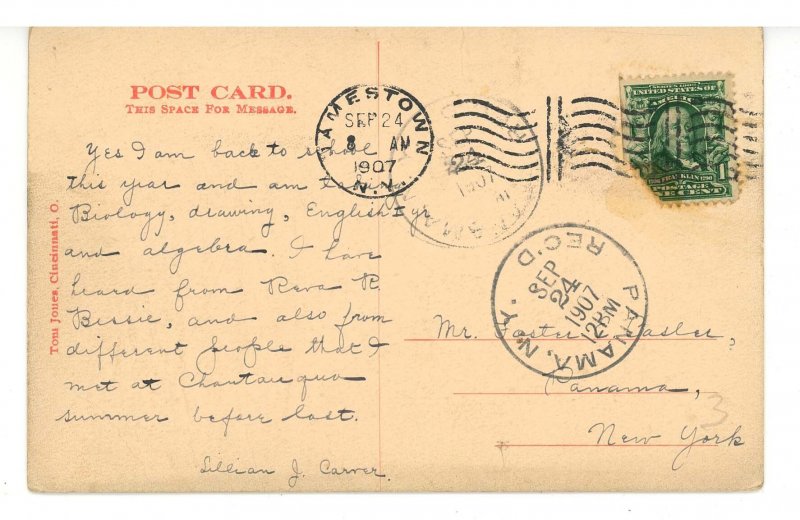 POST CARD.
THIS SPACE FOR MESSAGE.
Yes I am back to school
this year and am
Biology, drawing, English I yr
and algebra. I have
heard from Reva R.
Bessie, and also from
different people that I
met at Chautauqua
summer before last.
Lillian J. Carver.
Tom Jones, Cincinnati, O.
JAMESTOWN
SEP 24
8 AM
1907
N.Y.
1907
SERIES 1902
UNITED STATES OF
AMERIC
FRANKLIN 1790
POSTAGE
1 NE CENT
PANAMA, N.Y. REC'D.
SEP
24
1907
12 M
Mr. Foster Casler,
Panama,
New York
3